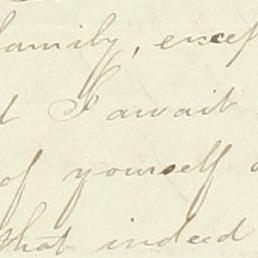 family, excep
I await
of yourself
that indeed